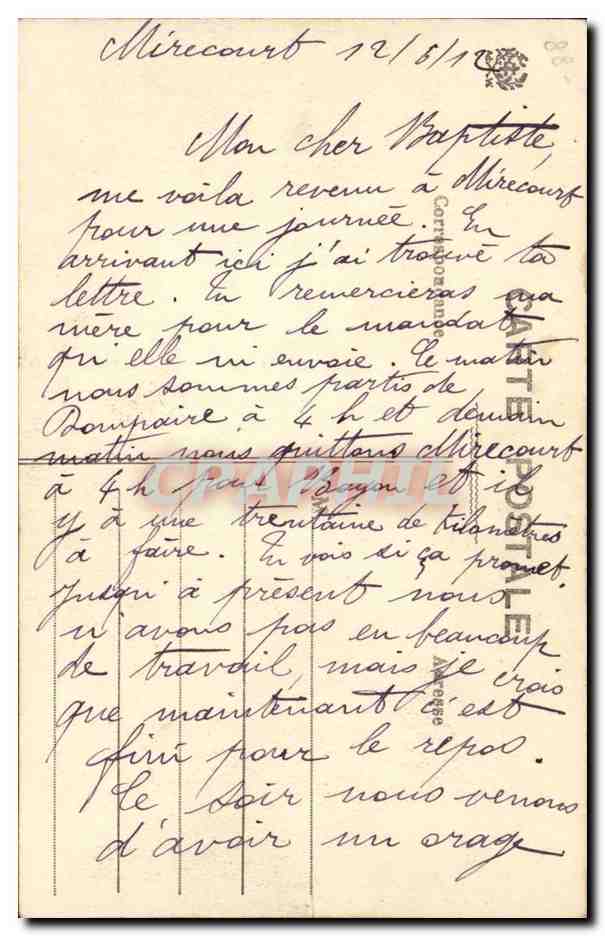 Mirecourt 12/6/12
88-
Mon cher Baptiste,
me voila revenu à Mirecourt
pour une journée. En
arrivant ici j'ai trouvé ta
lettre. Tu remercieras ma
mère pour le mandat
qu'elle m'envoie. Ce matin
nous sommes partis de
Dompaire à 4 h et demain
matin nous quittons Mirecourt
à 4 h pour Bayon et il
y à une trentaine de kilomètres
à faire. Tu vois si ça promet.
Jusqu'à présent nous
n'avons pas eu beaucoup
de travail, mais je crois
que maintenant c'est
fini pour le repos.
Ce soir nous venons
d'avoir un orage
CARTE POSTALE
Correspondance
Adresse
CPARHIL